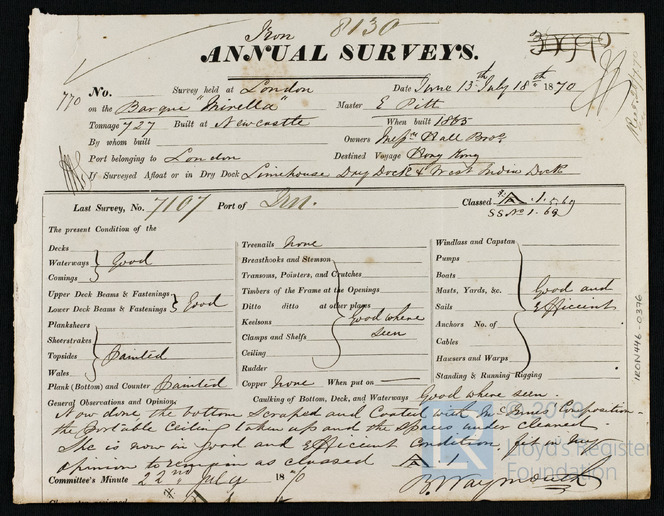 Iron 8130
ANNUAL SURVEYS.
770 No. Survey held at London Date June 13th July 18th 1870
on the Barque "Mirella" Master E Pitt
Tonnage 727 Built at Newcastle When built 1865
By whom built Owners Messrs Ball Bros.
Port belonging to London Destined Voyage Hong Kong
If Surveyed Afloat or in Dry Dock Limehouse Dry Dock & West India Dock
Last Survey, No. 7107 Port of Lon. Classed A 1. 5,69
SS No 1. 69
The present Condition of the
Decks
Waterways Good
Comings
Upper Deck Beams & Fastenings
Lower Deck Beams & Fastenings Good
Planksheers
Sheerstrakes
Topsides Painted
Wales
Plank (Bottom) and Counter Painted
Treenails none
Breasthooks and Stemson
Transons, Pointers, and Crutches
Timbers of the Frame at the Openings
Ditto ditto at other places
Keelsons Good where
Clamps and Shelfs seen
Ceiling
Rudder
Copper None When put on —
Windlass and Capstan
Pumps
Boats
Masts, Yards, &c. Good and
Sails Efficient
Anchors No. of
Cables
Hawsers and Warps
Standing & Running Rigging
General Observations and Opinion, Caulking of Bottom, Deck, and Waterways Good where seen
Now done the bottom scraped and Coated with McInnes Composition
the portable Ceiling taken up and the spaces under cleaned.
She is now in good and Efficient Condition, fit in my
opinion to remain as classed A 1
Committee's Minute 22nd July 1870 B. Waymouth
IRON446-0376
2019
Lloyd's Register
Foundation